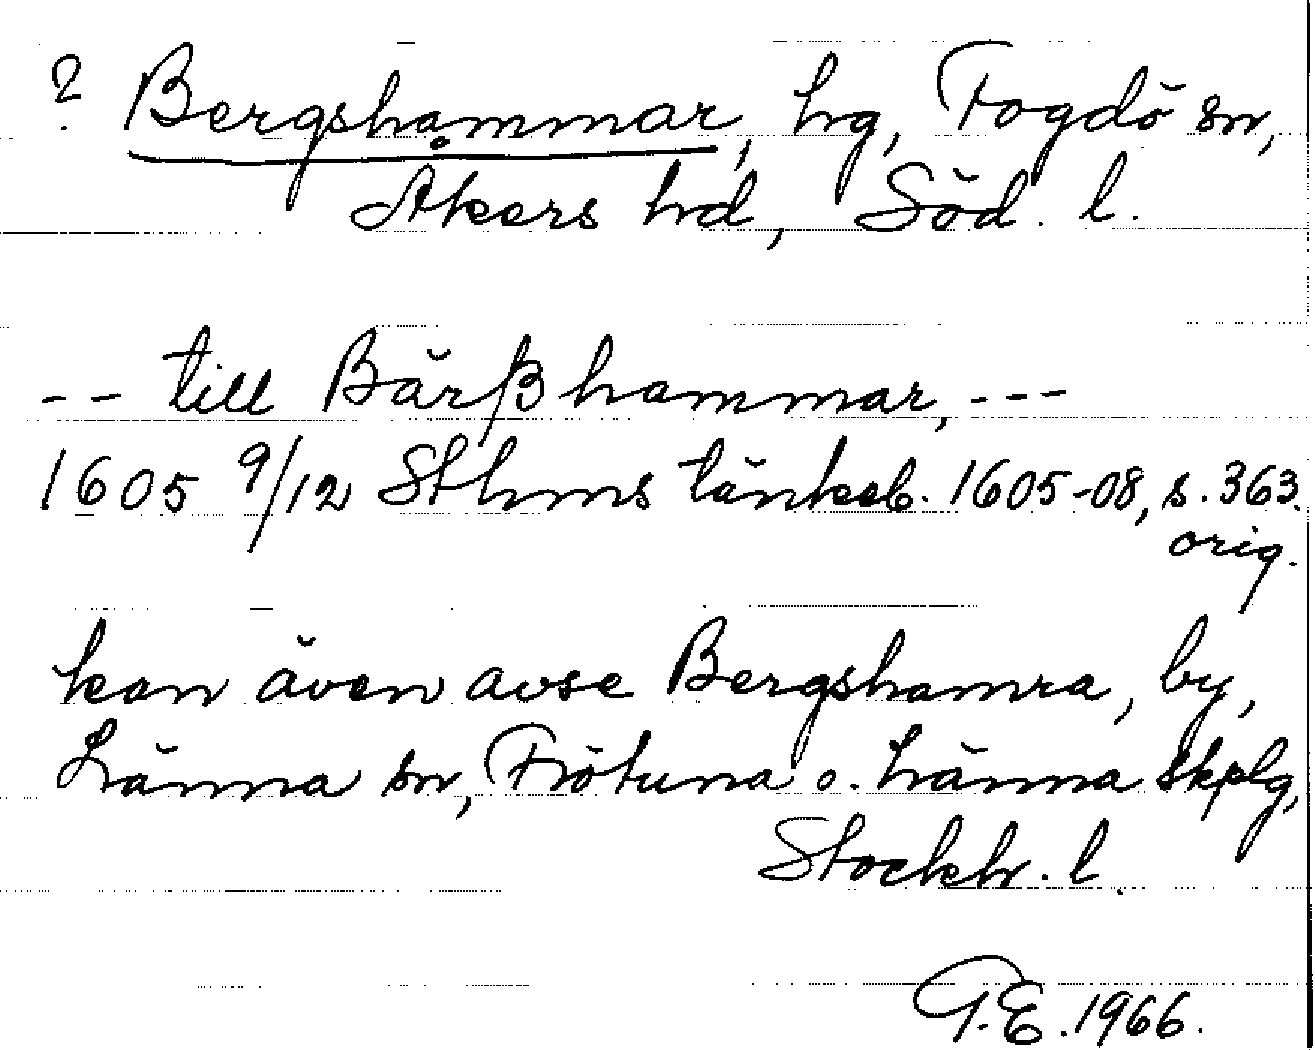 ? Bergshammar, hg, Fogdö sn,
Åkers hd, Söd. l.
-- till Bärßhammar, ---
1605 9/12 Sthms tänkeb. 1605-08, s. 363.
orig.
kan även avse Bergshamra, by,
Länna sn, Frötuna o. Länna skplg,
Stockh. l.
G.E. 1966.